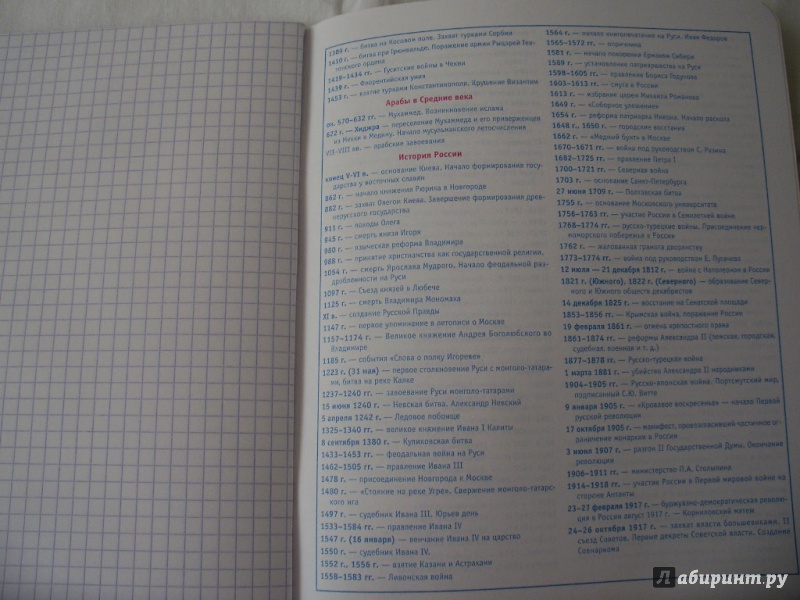 1389 г. — битва на Косовом поле. Захват турками Сербии
1410 г. — битва при Грюнвальде. Поражение армии Рыцарей Тев-
тонского ордена
1419–1434 гг. — Гуситские войны в Чехии
1439 г. — Флорентийская уния
1453 г. — взятие турками Константинополя. Крушение Византии
Арабы в Средние века
ок. 570–632 гг. — Мухаммед. Возникновение ислама
622 г. — Хиджра — переселение Мухаммеда и его приверженцев
из Мекки в Медину. Начало мусульманского летосчисления
VII–VIII вв. — арабские завоевания
История России
конец V–VI в. — основание Киева. Начало формирования госу-
дарства у восточных славян
862 г. — начало княжения Рюрика в Новгороде
882 г. — захват Олегом Киева. Завершение формирования древ-
нерусского государства
911 г. — походы Олега
945 г. — смерть князя Игоря
980 г. — языческая реформа Владимира
988 г. — принятие христианства как государственной религии.
1054 г. — смерть Ярослава Мудрого. Начало феодальной раз-
дробленности на Руси
1097 г. — Съезд князей в Любече
1125 г. — смерть Владимира Мономаха
XI в. — создание Русской Правды
1147 г. — первое упоминание в летописи о Москве
1157–1174 г. — Великое княжение Андрея Боголюбского во
Владимире
1185 г. — события «Слова о полку Игореве»
1223 г. (31 мая) — первое столкновение Руси с монголо-татара-
ми, битва на реке Калке
1237–1240 гг. — завоевание Руси монголо-татарами
15 июня 1240 г. — Невская битва. Александр Невский
5 апреля 1242 г. — Ледовое побоище
1325–1340 гг. — великое княжение Ивана I Калиты
8 сентября 1380 г. — Куликовская битва
1433–1453 гг. — феодальная война на Руси
1462–1505 гг. — правление Ивана III
1478 г. — присоединение Новгорода к Москве
1480 г. — «Стояние на реке Угре». Свержение монголо-татарс-
кого ига
1497 г. — судебник Ивана III. Юрьев день
1533–1584 гг. — правление Ивана IV
1547 г. (16 января) — венчание Ивана IV на царство
1550 г. — судебник Ивана IV.
1552 г., 1556 г. — взятие Казани и Астрахани
1558–1583 гг. — Ливонская война
1564 г. — начало книгопечатания на Руси. Иван Федоров
1565–1572 гг. — опричнина
1581 г. — начало покорения Ермаком Сибири
1589 г. — установление патриаршества на Руси
1598–1605 гг. — правление Бориса Годунова
1603–1613 гг. — смута в России
1613 г. — избрание царем Михаила Романова
1649 г. — «Соборное уложение»
1654 г. — реформа патриарха Никона. Начало раскола
1648 г., 1650 г. — городские восстания
1662 г. — «Медный бунт» в Москве
1670–1671 гг. — война под руководством С. Разина
1682–1725 гг. — правление Петра I
1700–1721 гг. — Северная война
1703 г. — основание Санкт-Петербурга
27 июня 1709 г. — Полтавская битва
1755 г. — основание Московского университета
1756–1763 гг. — участие России в Семилетней войне
1768–1774 гг. — русско-турецкие войны. Присоединение чер-
номорского побережья к России
1762 г. — жалованная грамота дворянству
1773–1774 гг. — война под руководством Е. Пугачева
12 июля — 21 декабря 1812 г. — война с Наполеоном в России
1821 г. (Южного), 1822 г. (Северного) — образование Северно-
го и Южного обществ декабристов
14 декабря 1825 г. — восстание на Сенатской площади
1853–1856 гг. — Крымская война, поражение России
19 февраля 1861 г. — отмена крепостного права
1861–1874 гг. — реформы Александра II (земская, городская,
судебная, военная и т. д.)
1877–1878 гг. — Русско-турецкая война
1 марта 1881 г. — убийство Александра II народниками
1904–1905 гг. — Русско-японская война. Портсмутский мир,
подписанный С.Ю. Витте
9 января 1905 г. — «Кровавое воскресенье» — начало Первой
русской революции
17 октября 1905 г. — манифест, провозгласивший частичное ог-
раничение монархии в России
3 июня 1907 г. — разгон II Государственной Думы. Окончание
революции
1906–1911 гг. — министерство П.А. Столыпина
1914–1918 гг. — участие России в Первой мировой войне на
стороне Антанты
23–27 февраля 1917 г. — буржуазно-демократическая револю-
ция в России август 1917 г. — Корниловский мятеж
24–26 октября 1917 г. — захват власти большевиками. II
съезд Советов. Первые декреты Советской власти. Создание
Совнаркома
Лабиринт.ру